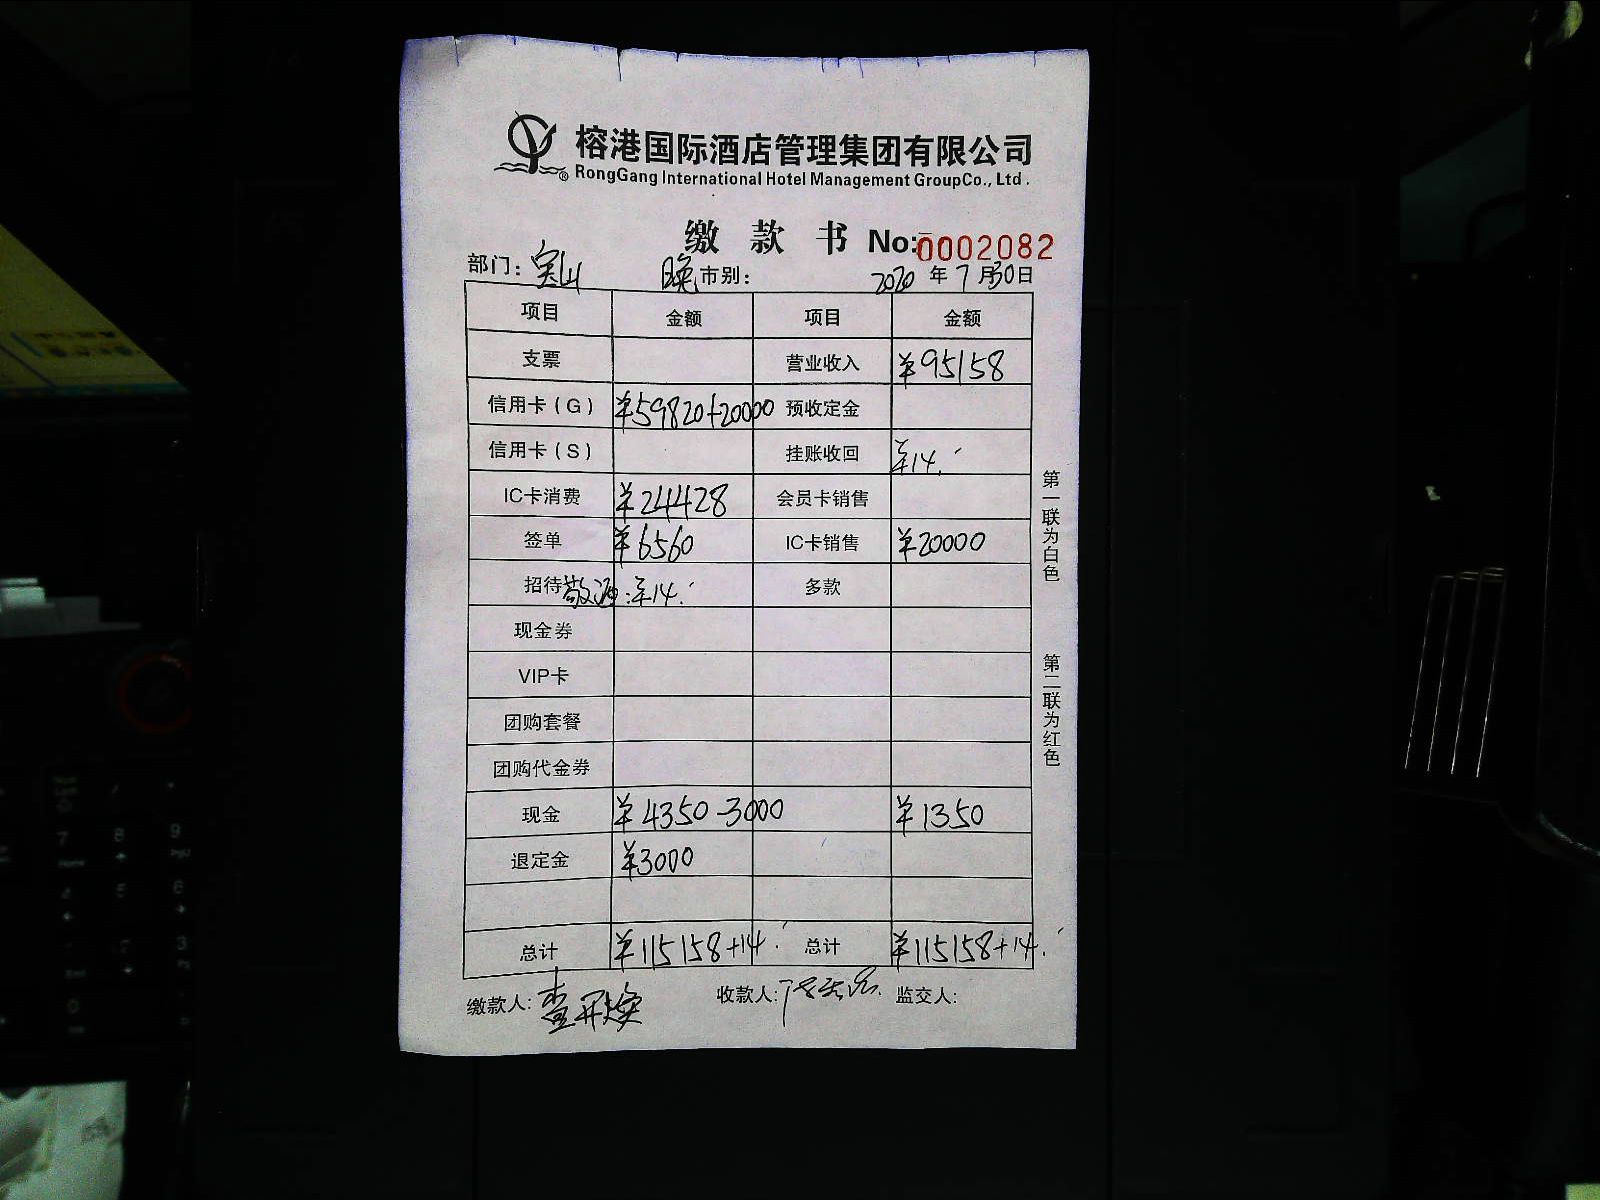 榕港国际酒店管理集团有限公司
RongGang International Hotel Management GroupCo., Ltd.
缴款书 No:0002082
部门: 宝山 晚市别: 2020年7月30日
项目 金额 项目 金额
支票 营业收入 ¥95158
信用卡(G) ¥59820+20000 预收定金
信用卡(S) 挂账收回 ¥14.
IC卡消费 ¥24428 会员卡销售
签单 ¥6560 IC卡销售 ¥20000
招待 ¥14. 多款
现金券
VIP卡
团购套餐
团购代金券
现金 ¥4350-3000 ¥1350
退定金 ¥3000
总计 ¥115158+14. 总计 ¥115158+14.
缴款人: 收款人: 监交人:
第一联为白色
第二联为红色